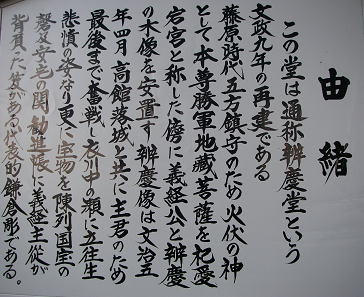 由緒
この堂は通称辨慶堂という
文政九年の再建である
藤原時代五方鎮守のため火伏の神
として本尊勝軍地蔵菩薩を祀愛
宕宮と称した傍に義経公と辨慶
の木像を安置す辨慶像は文治五
年四月高館落城と共に主君のため
最後まで奮戦し衣川の瀬に立往生
悲憤の姿なり更に宝物を陳列国宝の
磬及安宅の関勧進帳に義経主従が
背負った笈がある代表的鎌倉彫である。